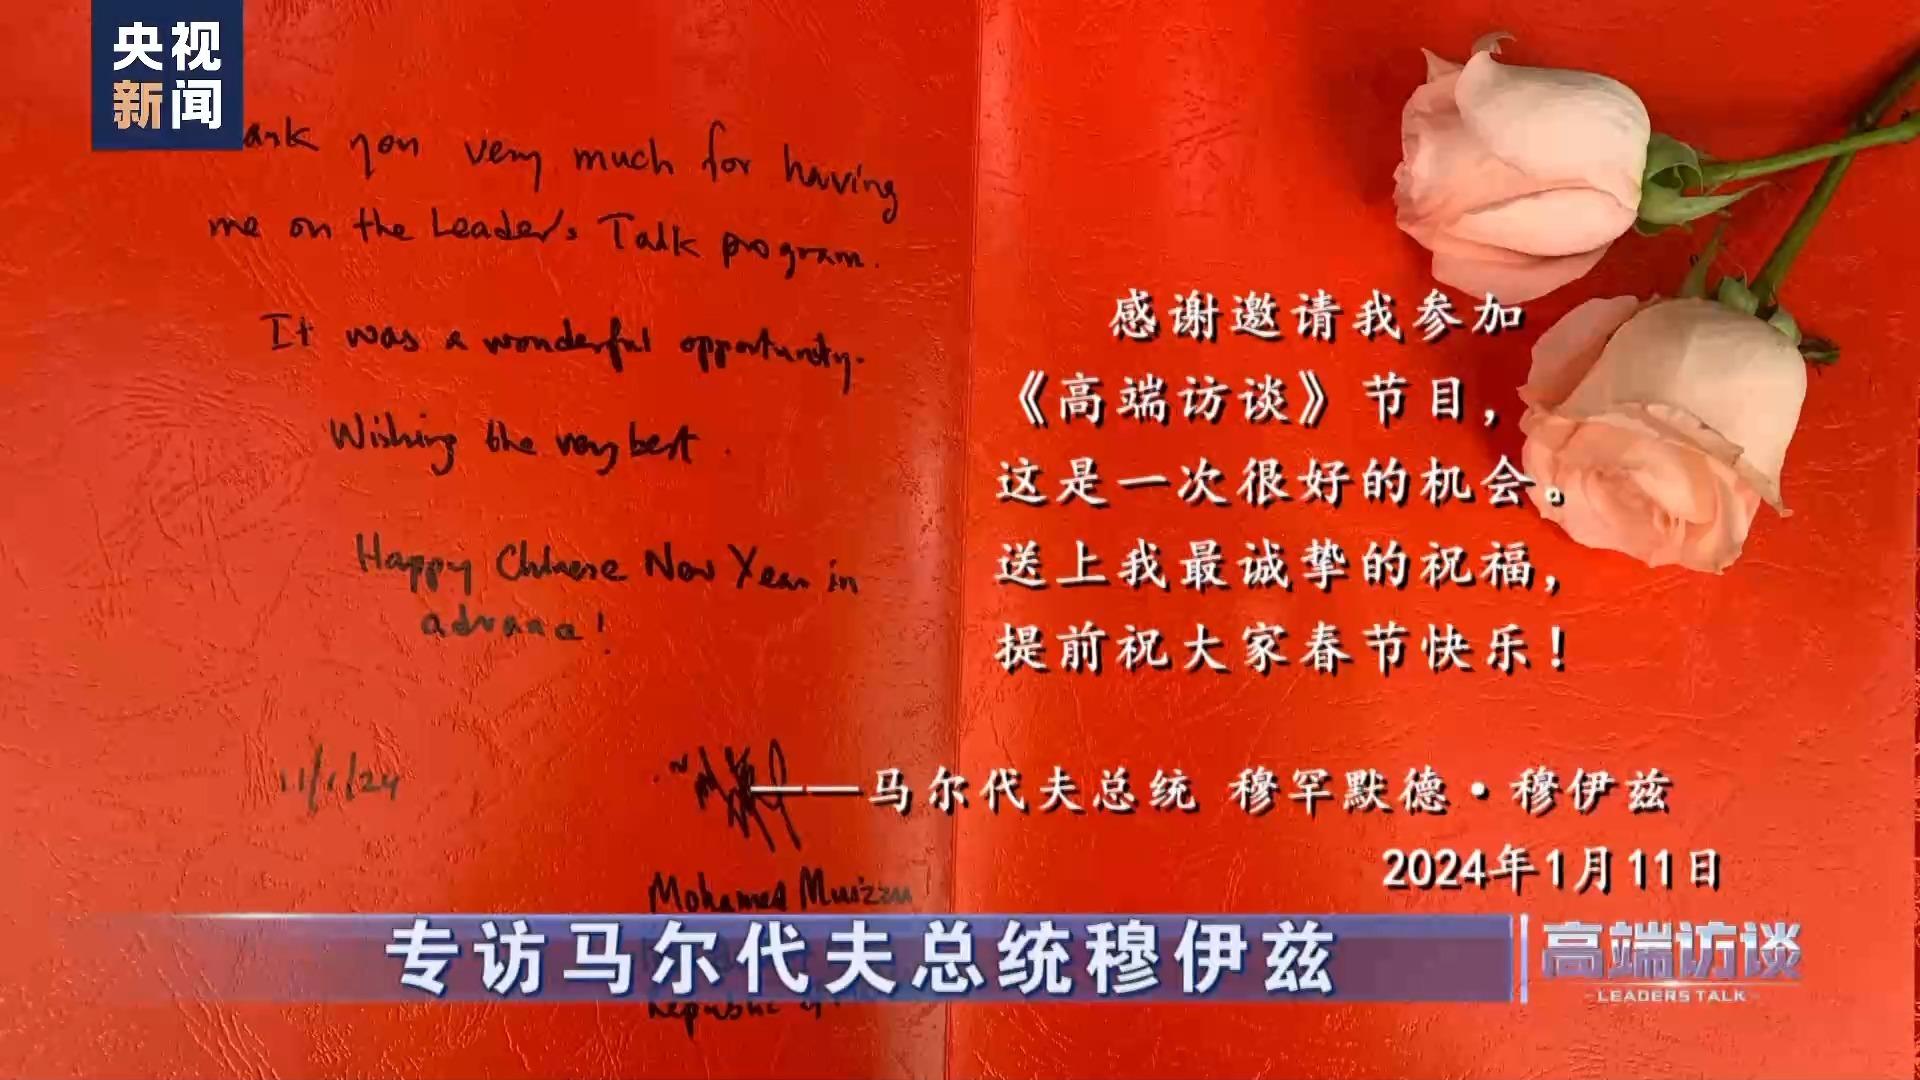 央视
新闻
ank you very much for having
me on the Leader's Talk program.
It was a wonderful opportunity.
Wishing the very best.
Happy Chinese New Year in
advance!
11/1/24
Mohamed Muizzu
Republic of
感谢邀请我参加
《高端访谈》节目，
这是一次很好的机会。
送上我最诚挚的祝福，
提前祝大家春节快乐！
——马尔代夫总统 穆罕默德·穆伊兹
2024年1月11日
专访马尔代夫总统穆伊兹
高端访谈
LEADERS TALK